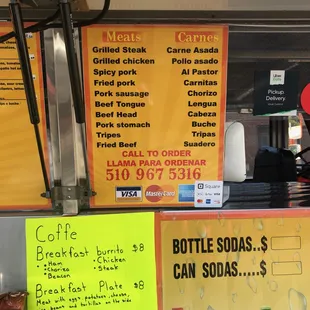 Meats Carnes
Grilled Steak Carne Asada
Grilled chicken Pollo asado
Spicy pork Al Pastor
Fried pork Carnitas
Pork sausage Chorizo
Beef Tongue Lengua
Beef Head Cabeza
Pork stomach Buche
Tripes Tripas
Fried Beef Suadero
CALL TO ORDER
LLAMA PARA ORDENAR
510 967 5316
VISA MasterCard
Square
Pickup
Delivery
Coffe
Breakfast burrito $8
• Ham • Chicken
• Chorizo • Steak
• Beacon
Breakfast Plate $8
Meat with eggs, potatoes, cheese,
beans and tortillas on the side
BOTTLE SODAS..$
CAN SODAS.....$